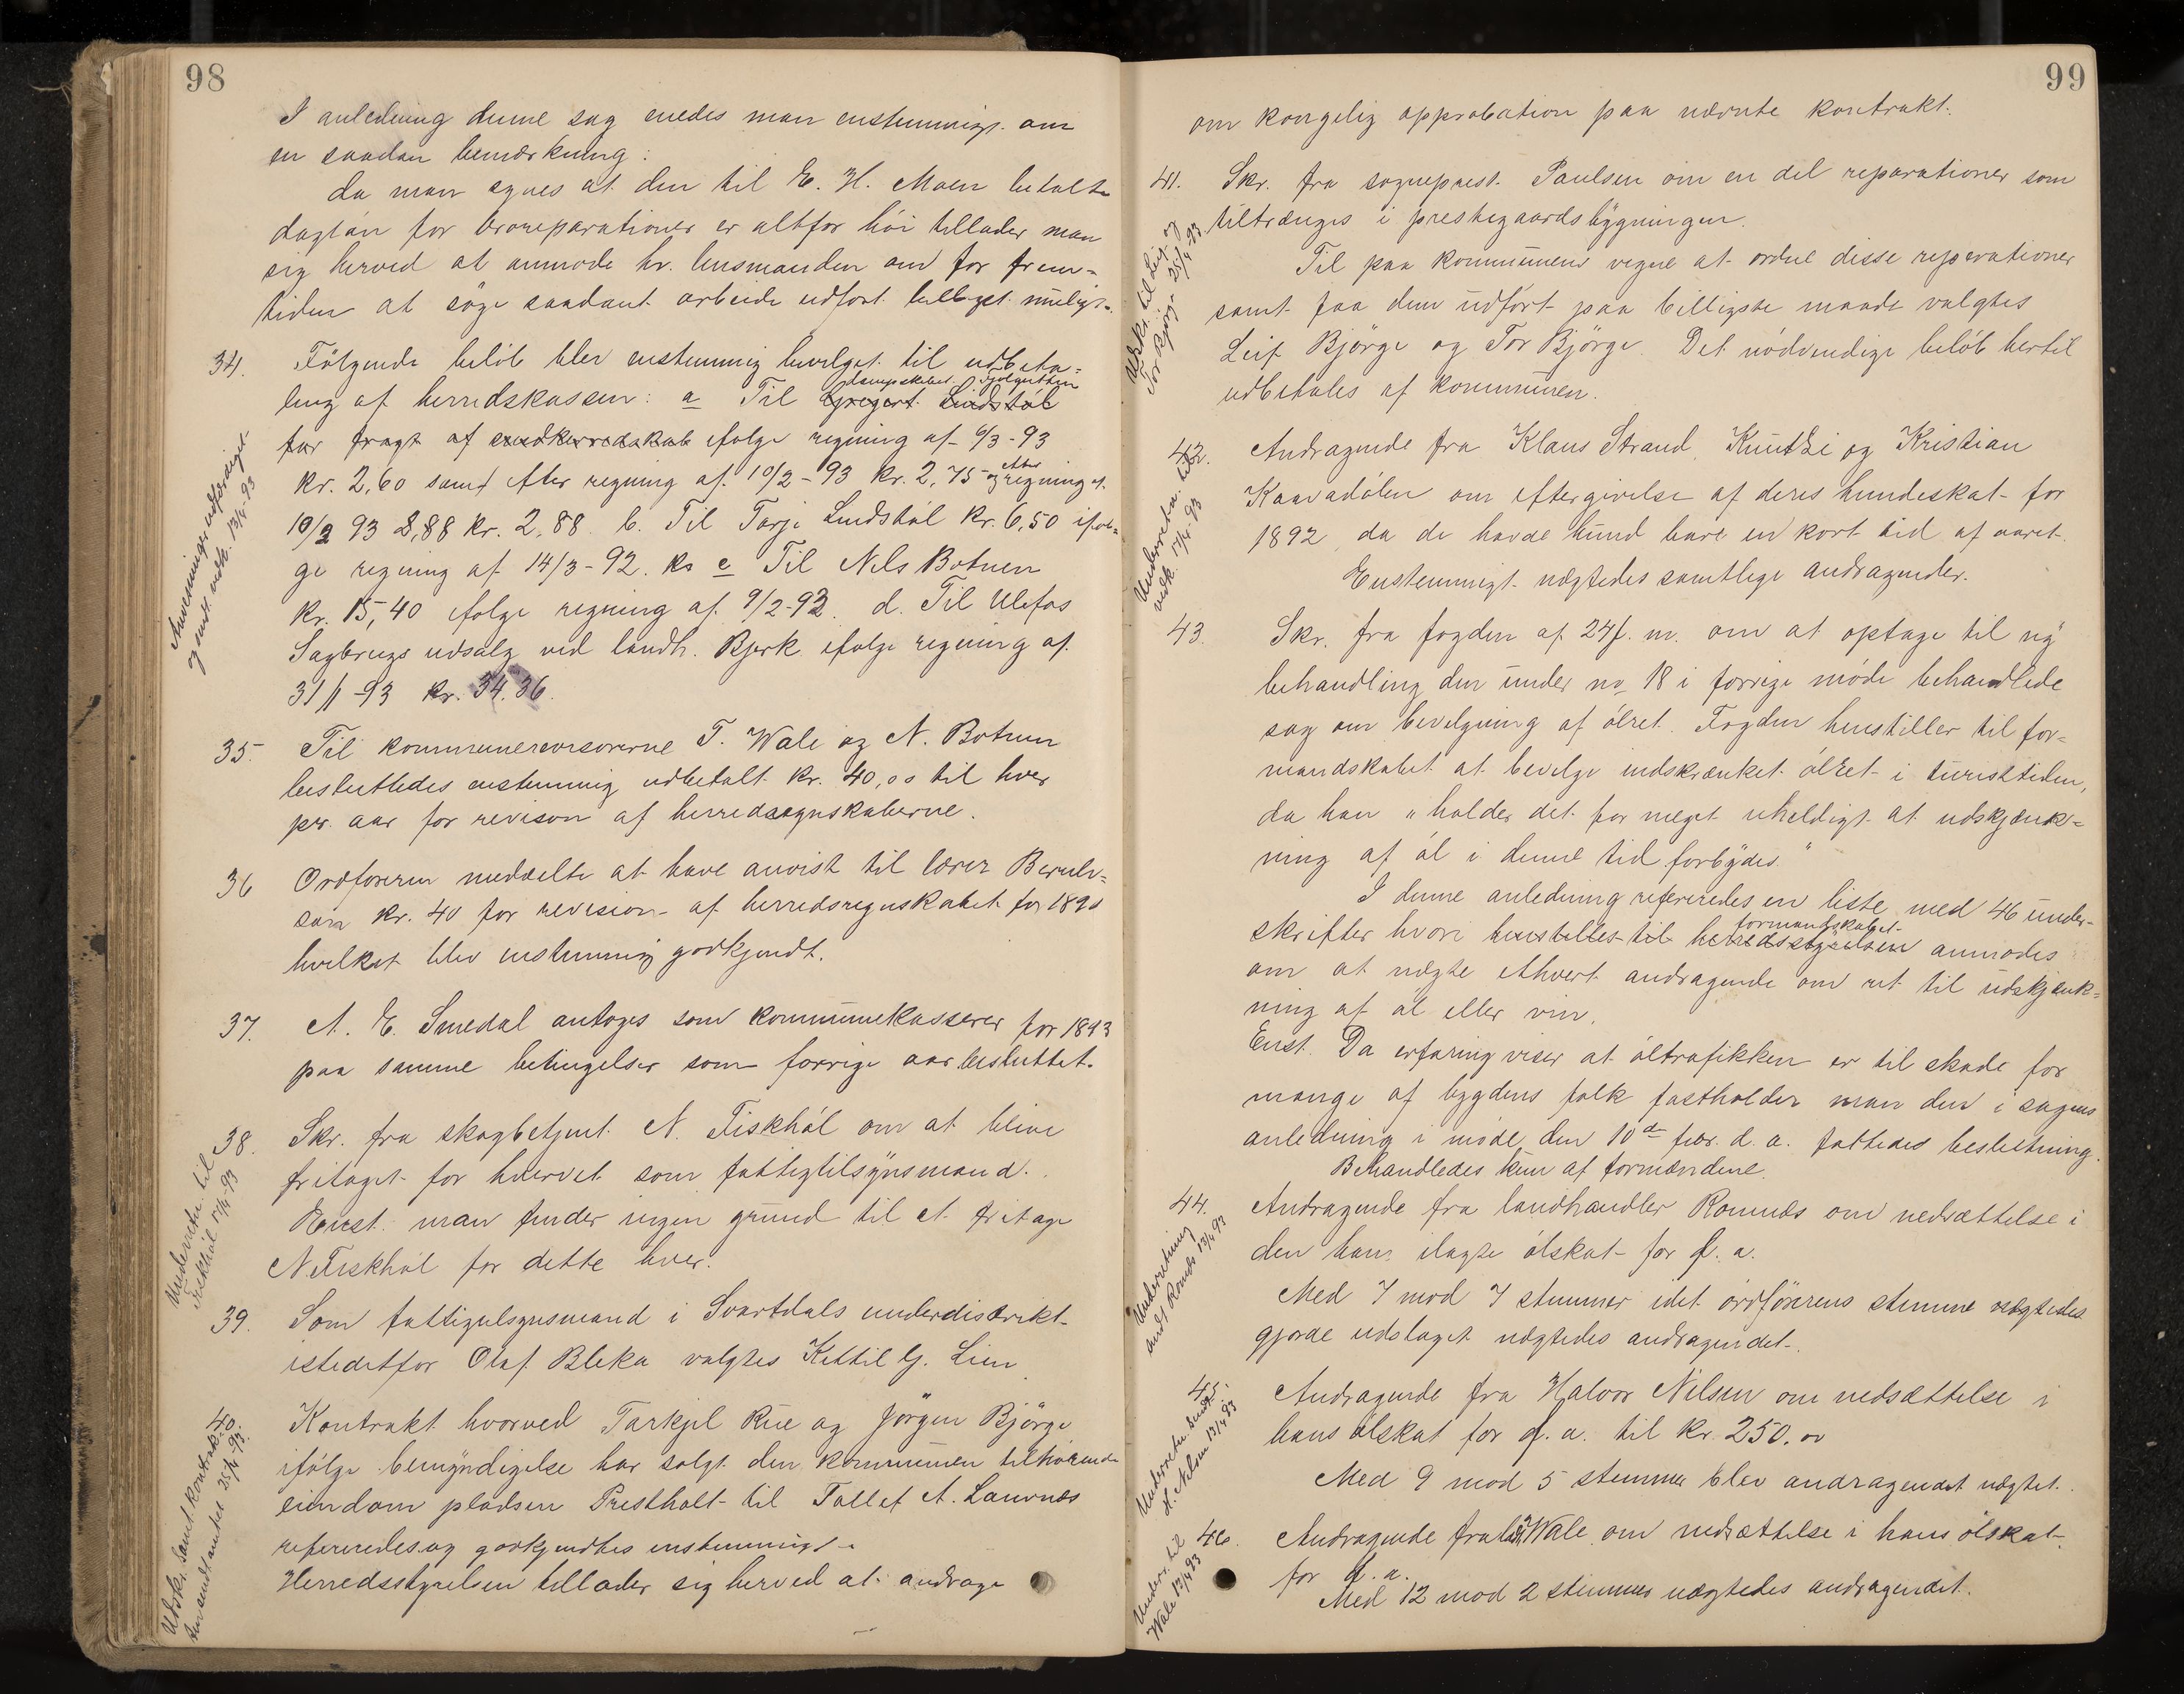 98
I anledning denne sag enedes man enstemmigt om
en saadan bemærkning:
Da man synes at den til E. H. Moen betalte
daglön for broreparationer er altfor höi tillader man
sig herved at anmode hr. lensmanden om for frem-
tiden at söge saadant arbeide udfört billigst muligt.
34. Fölgende belöb blev enstemmig bevilget til udbeta-
ling af herredskassen: a Til Gregert Lindstöl
for fragt af ifölge regning af 6/3-93
kr. 2,60 samt efter regning af 10/2-93 kr. 2,75 og efter regning af
10/2 93 2,88 kr. 2,88. b. Til Tarje Lindstöl kr. 6,50 iföl-
ge regning af 14/3-92. kr c Til Nils Botnen
kr. 15,40 ifölge regning af 9/2-93. d. Til Ulefos
Sagbrugs udsalg ved landh. Bjerk ifölge regning af
31/1-93 kr. 34.36.
Anvisninger udfærdiget
og sendt vedk. 13/4-93
35. Til kommunerevisorerne T. Wale og N. Botnen
besluttedes enstemmig udbetalt kr. 40,00 til hver
pr. aar for revison af herredsregnskaberne.
36 Ordföreren meddelte at have anvist til lærer Berulv-
son kr. 40 for revision af herredsregnskabet for 1890
hvilket blev enstemmig godkjendt.
37. A. E. Smedal antoges som kommunekasserer for 1893
paa samme betingelser som forrige aar besluttet.
38. Skr. fra skogbetjent N. Fiskhöl om at blive
fritaget for hvervet som fattigtilsynsmand.
Enst. man finder ingen grund til at fritage
N Fiskhöl for dette hver.
Underretn til
Fiskhöl 17/4-93
39. Som fattigtilsynsmand i Svartdals underdistrikt
istedetfor Olaf Bleka valgtes Kettil G. Lien
40. Kontrakt hvorved Tarkjel Rue og Jörgen Björge
ifölge bemyndigelse har solgt den kommunen tilhörende
eiendom pladsen Prestholt til Tallef A. Laurnes
refereredes og godkjendtes enstemmigt.
Herredsstyrelsen tillader sig herved at andrage
Udskr. samt kontrakten
sendt amtet 25/4-93.
99
om kongelig approbation paa nævnte kontrakt.
41. Skr. fra sogneprest Paulsen om en del reparationer som
tiltrænges i prestegaardsbygningen.
Til paa kommunens vegne at ordne disse reparationer
samt faa dem udfört paa billigste maade valgtes
Leif Björge og Tor Björge. Det nödvendige belöb hertil
udbetales af kommunen.
Udskr. til Leif og
Tor Björge 25/4-93.
42. Andragende fra Klaus Strand, og Kristian
Kaavadölen om eftergivelse af deres hundeskat for
1892, da de havde hund bare en kort tid af aaret.
Enstemmigt nægtedes samtlige andragender.
Underretn. til
vedk. 17/4-93
43. Skr. fra fogden af 24 f. m. om at optage til ny
behandling den under no 18 i forrige möde behandlede
sag om bevilgning af ölret. Fogden henstiller til for-
mandskabet at bevilge indskrænket ölret i turisttiden,
da han "holder det for meget uheldigt at udskjænk-
ning af öl i denne tid forbydes."
I denne anledning refereredes en liste med 46 under-
skrifter hvori henstilles til herredsstyrelsen formandskabet anmodes
om at nægte ethvert andragende om ret til udskjænk-
ning af öl eller vin.
Enst. Da erfaring viser at öltrafikken er til skade for
mange af bygdens folk fastholder man den i sagens
anledning i möde den 10de febr. d. a. fattedes beslutning.
Behandledes kun af formændene.
44. Andragende fra landhandler Romnes om nedsættelse i
den ham ilagte ölskat for f. a.
Med 7 mod 7 stemmer idet ordförerens stemme nægtedes
gjorde udslaget nægtedes andragendet.
Underretning
sendt Romnes 13/4 93
45. Andragende fra Halvor Nilsen om nedsættelse i
hans ölskat for f. a. til kr. 250.00
Med 9 mod 5 stemmer blev andragendet nægtet.
Underretn sendt
H. Nilsen 13/4 93
46. Andragende fra Wale om nedsættelse i hans ölskat
for f. a.
Med 12 mod 2 stemmer nægtedes andragendet.
Underr. til
Wale 13/4 93